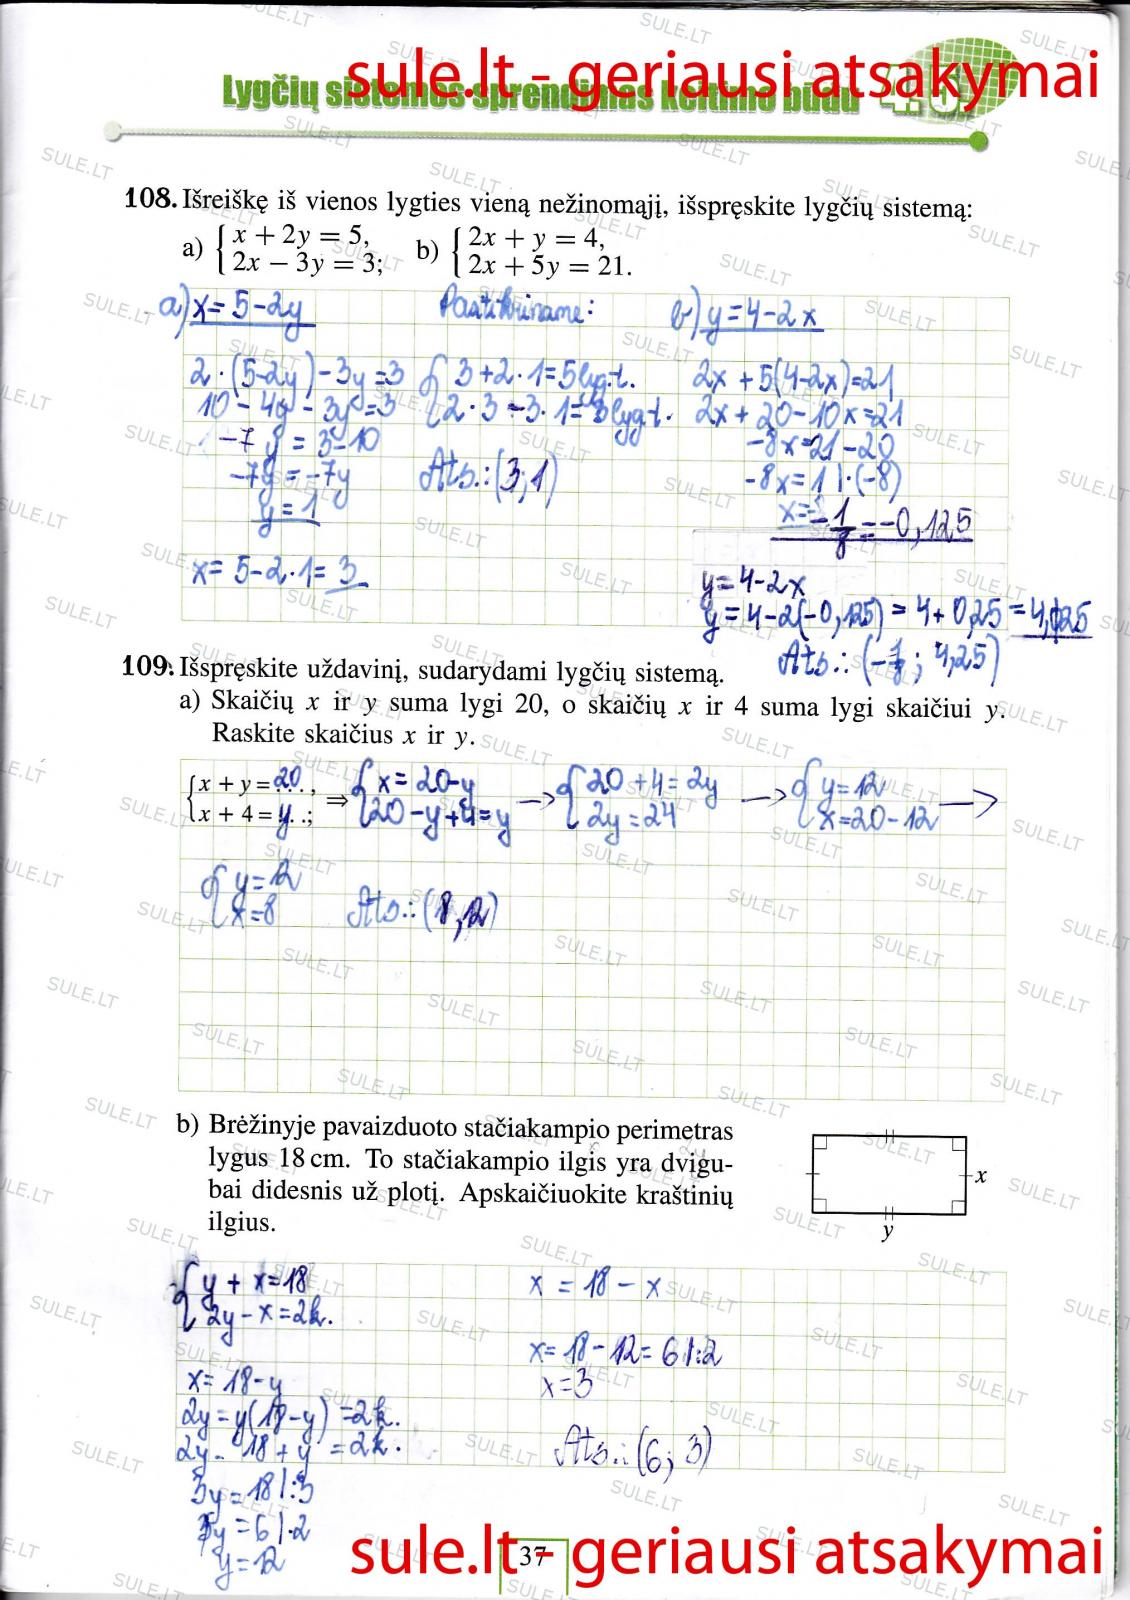 sule.lt - geriausi atsakymai
Lygčių sistemos sprendimas keitimo būdu
108. Išreiškę iš vienos lygties vieną nežinomąjį, išspręskite lygčių sistemą:
a) { x + 2y = 5, 2x − 3y = 3;
b) { 2x + y = 4, 2x + 5y = 21.
a) x = 5-2y
2·(5-2y)-3y=3
10-4y-3y=3
-7y=3-10
-7y=-7y
y=1
x=5-2·1=3
Patikriname:
{ 3+2·1=5 lygt.
2·3-3·1=3 lygt.
Ats.: (3;1)
b) y=4-2x
2x+5(4-2x)=21
2x+20-10x=21
-8x=21-20
-8x=1 |·(-8)
x=-1/8=-0,125
y=4-2x
y=4-2(-0,125)=4+0,25=
Ats.: (-1/8; 4,25)
109. Išspręskite uždavinį, sudarydami lygčių sistemą.
a) Skaičių x ir y suma lygi 20, o skaičių x ir 4 suma lygi skaičiui y.
Raskite skaičius x ir y.
{ x + y = 20, x + 4 = y; ⇒ { x=20-y 20-y+4=y → { 20+4=2y 2y=24 → { y=12 x=20-12 →
{ y=12 x=8
Ats.: (8,12)
b) Brėžinyje pavaizduoto stačiakampio perimetras
lygus 18 cm. To stačiakampio ilgis yra dvigu-
bai didesnis už plotį. Apskaičiuokite kraštinių
ilgius.
x
y
{ y+x=18
2y-x=2k.
x=18-y
2y=y(18-y)=2k.
2y-18+y=2k.
3y=18 |:3
y=6 |·2
y=12
x=18-x
x=18-12=6 |:2
x=3
Ats.: (6; 3)
37
sule.lt - geriausi atsakymai